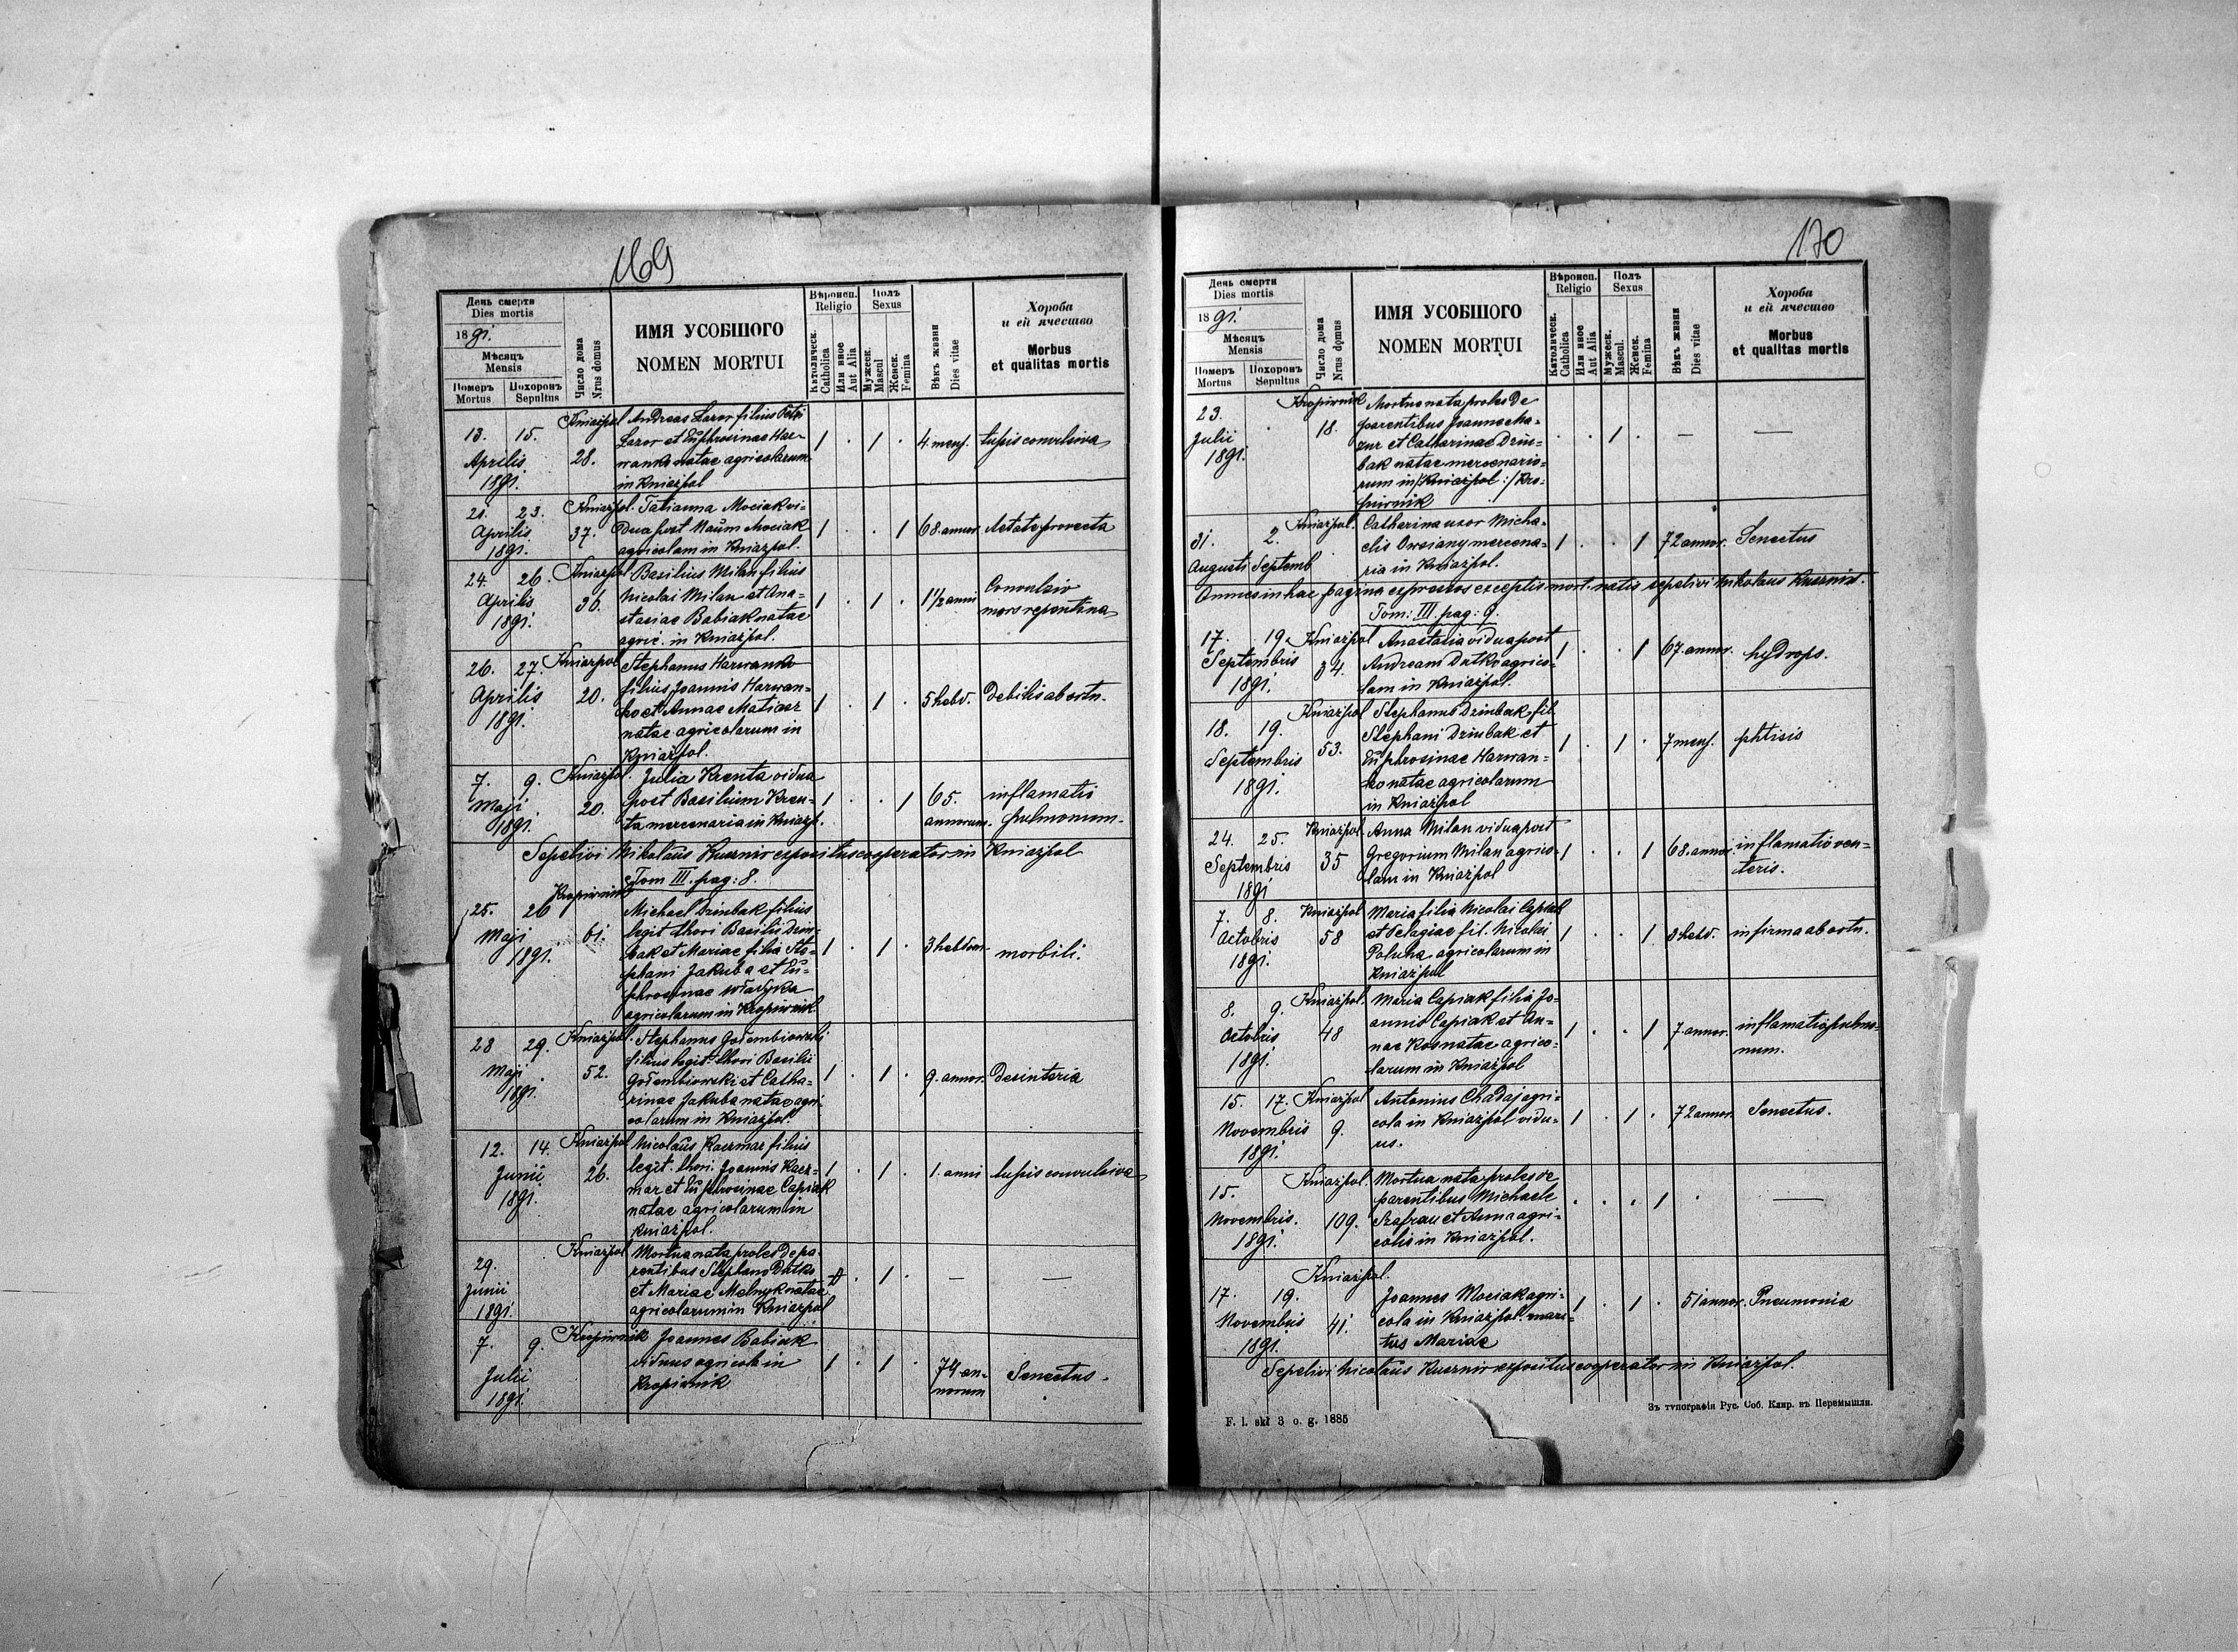 169
День смерти
Dies mortis
1891.
Мѣсяцъ
Mensis
Померъ
Mortus
Похоронъ
Sepultus
Число дома
Nrus domus
ИМЯ УСОБШОГО
NOMEN MORTUI
Вѣроисп.
Religio
Католическ.
Catholica
Или иное
Aut Alia
Полъ
Sexus
Мужеск.
Mascul
Женск.
Femina
Вѣкъ жизни
Dies vitae
Хороба
и ей ячество
Morbus
et qualitas mortis
13. 15.
Aprilis
1891.
Kniażpol
28.
Andreas Lazor filius Petri
Lazor et Euphrosinae Har-
wanko natae agricolarum
in Kniażpol
1 . 1 .
4. mens.
tussis convulsiva
21. 23.
Aprilis
1891.
Kniażpol.
37.
Tatianna Mociak vi-
dua post Naum Mociak
agricolam in Kniażpol.
1 . . 1
68. annor.
Aetate provecta
24. 26.
Aprilis
1891.
Kniażpol
36.
Basilius Milan filius
Nicolai Milan et Ana-
stasiae Babiak natae
agric. in Kniażpol.
1 . 1 .
1 1/2 anni
Convulsio
mors repentina
26. 27.
Aprilis
1891.
Kniażpol
20.
Stephanus Harwanko
filius Joannis Harwan-
ko et Annae
natae agricolarum in
Kniażpol.
1 . 1 .
5 hebd.
Debilis ab ortu.
7. 9.
Maji
1891.
Kniażpol.
20.
Julia Krenta vidua
post Basilium Kren-
ta mercenaria in Kniażp.
1 . . 1
65.
annorum.
inflamatio
pulmonum.
Sepelivi Nikolaus Kuzmir expositus cooperator in Kniażpol
Tom III. pag: 8.
25. 26
Maji
1891.
Kropiwnik
61.
Michael Dziubak filius
legit thori Basilii Dziu-
bak et Mariae filia Ste-
phani Jakuba et Eu-
phrosinae Władyka
agricolarum in Kropiwnik.
1 . 1 .
3 hebdom.
morbili.
28 29.
Maji
1891.
Kniażpol.
52.
Stephanus Gołembiowski
filius legit. thori Basilii
Gołembiowski et Catha-
rinae Jakuba natae agri-
colarum in Kniażpol.
1 . 1 .
9. annor.
Desinteria
12. 14.
Junii
1891.
Kniażpol
26.
Nicolaus Kaczmar filius
legit. thori. Joannis Kacz-
mar et Euphrosinae Capiak
natae agricolarum in
Kniażpol.
1 . 1 .
1. anni
tussis convulsiva
29.
Junii
1891.
Kniażpol
Mortua nata proles de pa-
rentibus Stephano Dutko
et Mariae Melnyk natae
agricolarum in Kniażpol
. 1 .
—
—
7. 9.
Julii
1891.
Kropiwnik
Joannes Babiak
viduus agricola in
Kropiwnik
1 . 1 .
74 an-
norum
Senectus.
170
День смерти
Dies mortis
1891.
Мѣсяцъ
Mensis
Померъ
Mortus
Похоронъ
Sepultus
Число дома
Nrus domus
ИМЯ УСОБШОГО
NOMEN MORTUI
Вѣроисп.
Religio
Католическ.
Catholica
Или иное
Aut Alia
Полъ
Sexus
Мужеск.
Mascul.
Женск.
Femina
Вѣкъ жизни
Dies vitae
Хороба
и ей ячество
Morbus
et qualitas mortis
23.
Julii
1891.
Kropiwnik
18.
Mortua nata proles de
parentibus Joanne Ma-
zur et Catharinae Dziu-
bak natae mercenario-
rum in /: Kniażpol :/ Kro-
piwnik
. . 1 .
—
—
31. 2.
Augusti Septemb
Kniażpol.
Catharina uxor Micha-
elis Owsiany mercena-
ria in Kniażpol.
1 . . 1
72 annor.
Senectus
Omnes in hac pagina expressos exceptis mort. natis sepelivi Nikolaus Kuzmir.
Tom: III. pag: 9.
17. 19.
Septembris
1891.
Kniażpol
34.
Anastasia vidua post
Andream Dutko agrico-
lam in Kniażpol.
1 . . 1
67. annor.
hydrops.
18. 19.
Septembris
1891.
Kniażpol
53.
Stephanus Dziubak fil
Stephani Dziubak et
Euphrosinae Harwan-
ko natae agricolarum
in Kniażpol
1 . 1 .
7 mens.
phtisis
24. 25.
Septembris
1891
Kniażpol.
35
Anna Milan vidua post
Gregorium Milan agrico-
lam in Kniażpol
1 . . 1
68. annor.
inflamatio ven-
teris.
7. 8.
Octobris
1891.
Kniażpol
58
Maria filia Nicolai Capiak
et Pelagiae fil. Nicolai
Poluha agricolarum in
Kniażpol
1 . . 1
8 hebd.
infirma ab ortu.
8. 9.
Octobris
1891.
Kniażpol.
48
Maria Capiak filia Jo-
annis Capiak et An-
nae Kos natae agrico-
larum in Kniażpol
1 . . 1
7. annor.
inflamatio pulmo-
num.
15. 17.
Novembris
1891.
Kniażpol
9.
Antonius Chadaj agri-
cola in Kniażpol vidu-
us.
1 . 1 .
72 annor.
Senectus.
15.
Novembris.
1891.
Kniażpol.
109.
Mortua nata proles de
parentibus Michaele
Szafran et Anna agri-
colis in Kniażpol.
. . . 1
.
—
17. 19.
Novembris
1891.
Kniażpol.
41.
Joannes Mociak agri-
cola in Kniażpol. mari-
tus Mariae
1 . 1 .
51 annor.
Pneumonia
Sepelivi Nicolaus Kuzmir expositus cooperator in Kniażpol.
F. l. skł 3 o. g. 1885
Зъ типографія Рус. Соб. Клир. въ Перемышли.